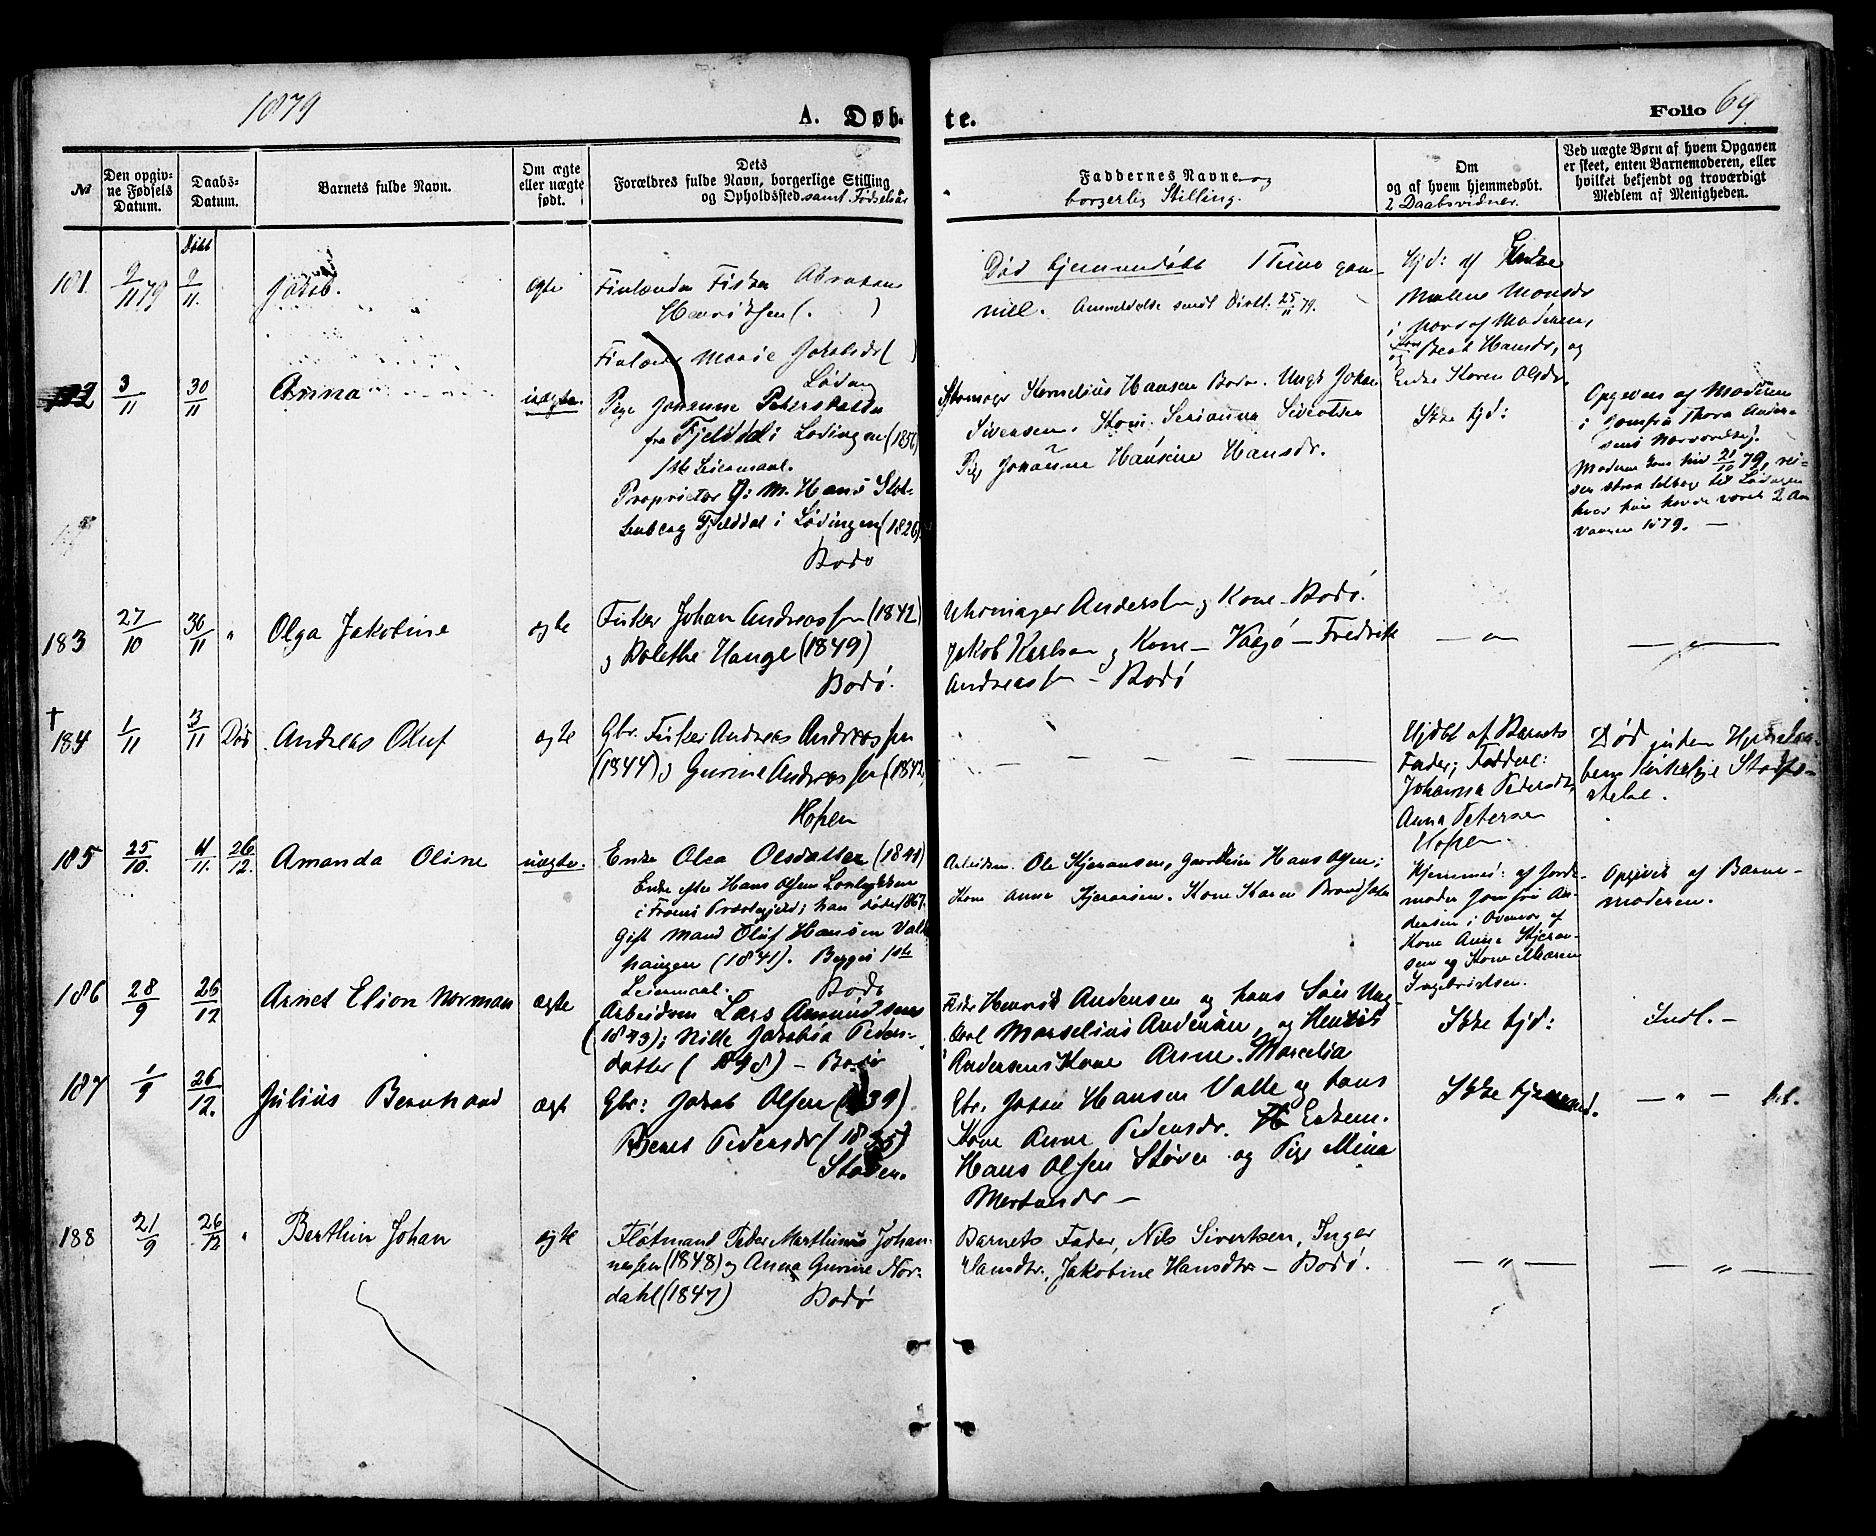 1879
A. Døbte.
Folio 69.
No
Den opgivne Fødsels Datum.
Daabs-Datum.
Barnets fulde Navn.
Om ægte eller uægte født.
Dets Forældres fulde Navn, borgerlige Stilling og Opholdssted. samt Fødselsår
Faddernes Navne og borgerlig Stilling.
Om og af hvem hjemmedøbt.
2 Daabsvidner.
Ved uægte Børn af hvem Opgaven er skeet, enten Barnemoderen, eller hvilket bekjendt og troværdigt Medlem af Menigheden.
181.
9/11 79
9/11.
Jakob.
ægte
Finlænder Fisker Abraham
Henriksen (. )
Finlænder Maria Jakobsdr ( )
Død hjemmedøbt 1 Time gam-
mel. Anmeldelse sendt Distl. 25/11 79.
Hjd: af Enke
Malene Monsdr
i nærv af Moderen,
og Berit Hansdr, og
Enke Karen Olsdr.
182
3/11
30/11
Anna
uægte.
Lødingen
Pige Johanne Petersdatter
fra Fjelddal i Lødingen (1856)
1ste Leiermaal.
Proprietær G: M. Hans Stol-
tenberg Fjelddal i Lødingen (1826).
Bodø
Skomager Kornelius Hansen Bodø. Ungk Johan
Sivertsen. Kone Serianna Sivertsen
Pige Johanne Hansine Hansdr.
Ikke hjd:
Opgeven af Moderen
i Jomfru Thora Ander-
sens Nærværelse.
Moderen kom hid 21/10 79, rei-
ser strax tilbage til Lødingen
hvor hun havde været 2 Aar
Vaaren 1879. —
183
27/10
30/11
"
Olga Jakobine
ægte
Fisker Johan Andreassen (1842)
og Bolethe Hauge (1849)
Bodø.
Uhrmager Anderssen og Kone - Bodø.
Jakob Karlsen og Kone - Vaagø - Fredrik
Andreassen - Bodø
— " —
— " —
† 184
1/11
3/11
Død
Andreas Oluf
ægte
Gbr. Fisker Andreas Andreassen
(1844) og Gurine Andreassen (1842)
Hopen
— — — — —
Hjdbt af Barnets
Fader; Faddere:
Johanna Pedersdtr,
Anna Petersen
Hopen.
Død inden Hjemmedaa-
bens Kirkelige Stadfæ-
stelse.
185
25/10.
4/11.
26/12.
Amanda Oline
uægte.
Enke Olea Olsdatter (1841)
Enke efter Hans Olsen
i Præstegjeld; han døde 1867.
Gift Mand Oluf Hansen Val-
haugen (1841). Begges 1ste
Leiermaal. Bodø
Arbeidsm. Ole Kjeransen, Gaardeier Hans Olsen;
Kone Anne Kjeransen. Kone Karen
Hjemmed: af Jorde-
moder Jomfru An-
dersen i Overvær af
Kone Anne Kjeran-
sen og Kone Maren
Ingebrigtsen.
Opgivet af Barne-
moderen.
186
28/9
26/12
Arnet Elion Norman
ægte
Arbeidsm Lars Amundsen
(1843); Nille Jakobia Peders-
datter (1848) — Bodø
Fisker Henrik Andersen og hans Søn Ung-
karl Marselius Andersen, og Henrik
Andersens Kone Anne. Marcelia
Ikke hjd:
Indl. —
187
1/9
26/12.
Julius Bernhard
ægte
Gbr: Jakob Olsen (1839)
Berit Pedersdr (1835)
Støver.
Gbr. Johan Hansen Valle og hans
Kone Anne Pedersdr. Enkem.
Hans Olsen Støver og Pige Mina
Mortensdr —
Ikke hjemmed.
— " —
188
21/9
26/12
"
Berthin Johan
ægte
Fløtmand Peder Marthinus Johan-
nessen (1848) og Anna Gurine Nor-
dahl (1847) Bodø
Barnets Fader, Nils Sivertsen, Inger
Hansdtr., Jakobine Hansdtr - Bodø.
— " —
— " —